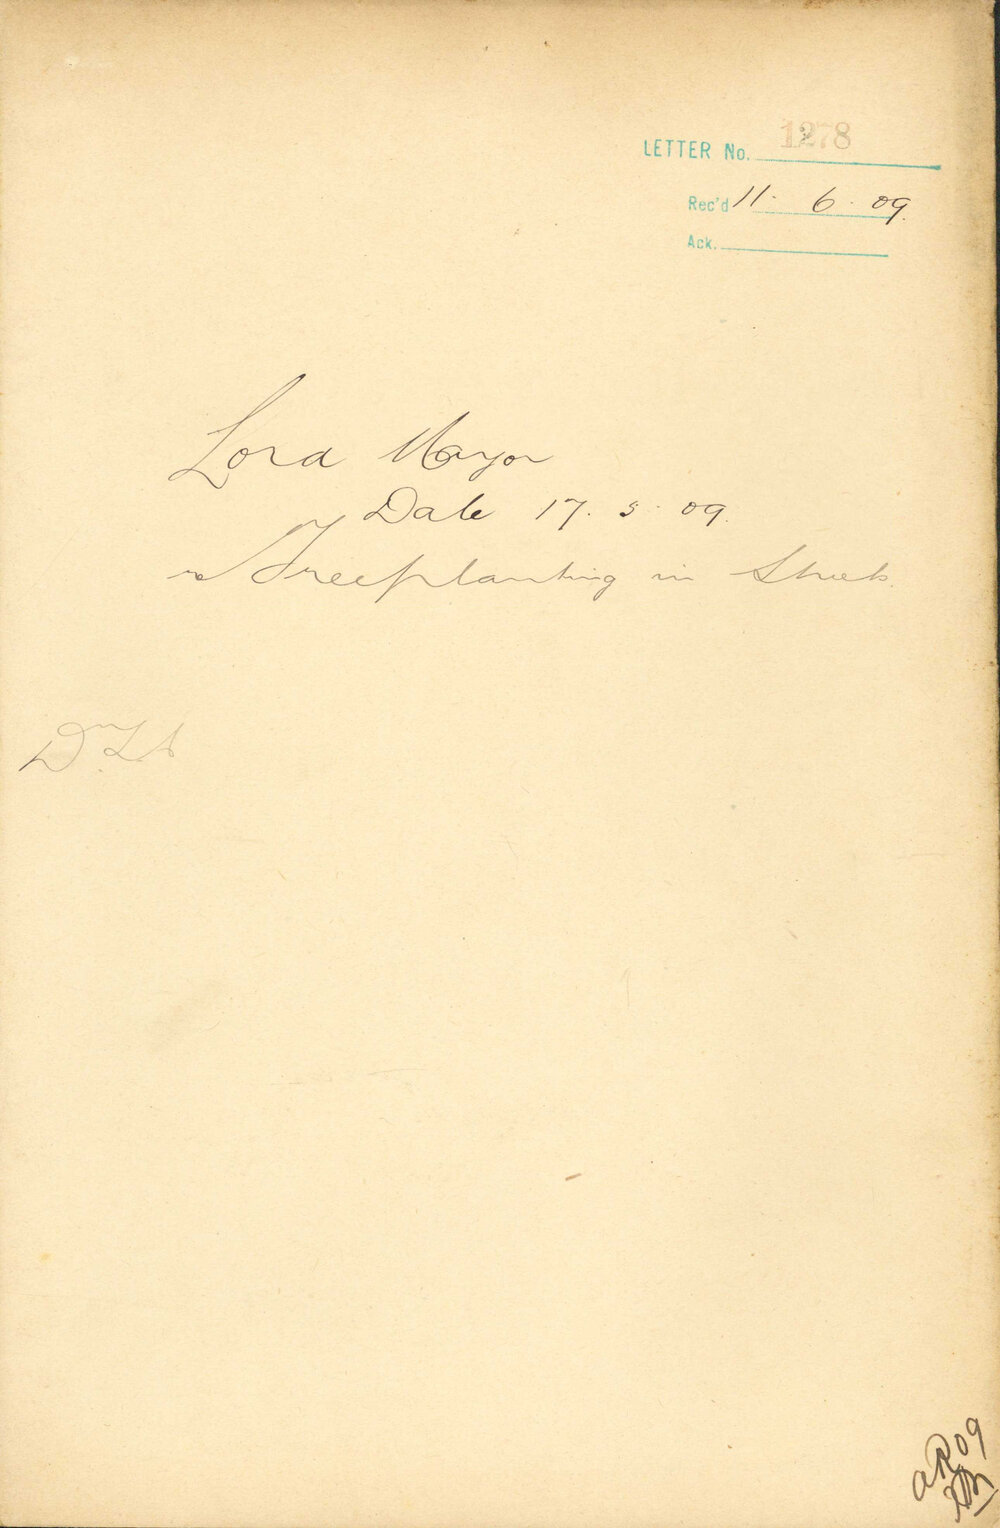 LETTER No. 1278
Rec'd 11. 6. 09.
Ack.
Lord Mayor
Date 17. 5. 09.
re Treeplanting in Streets.
09